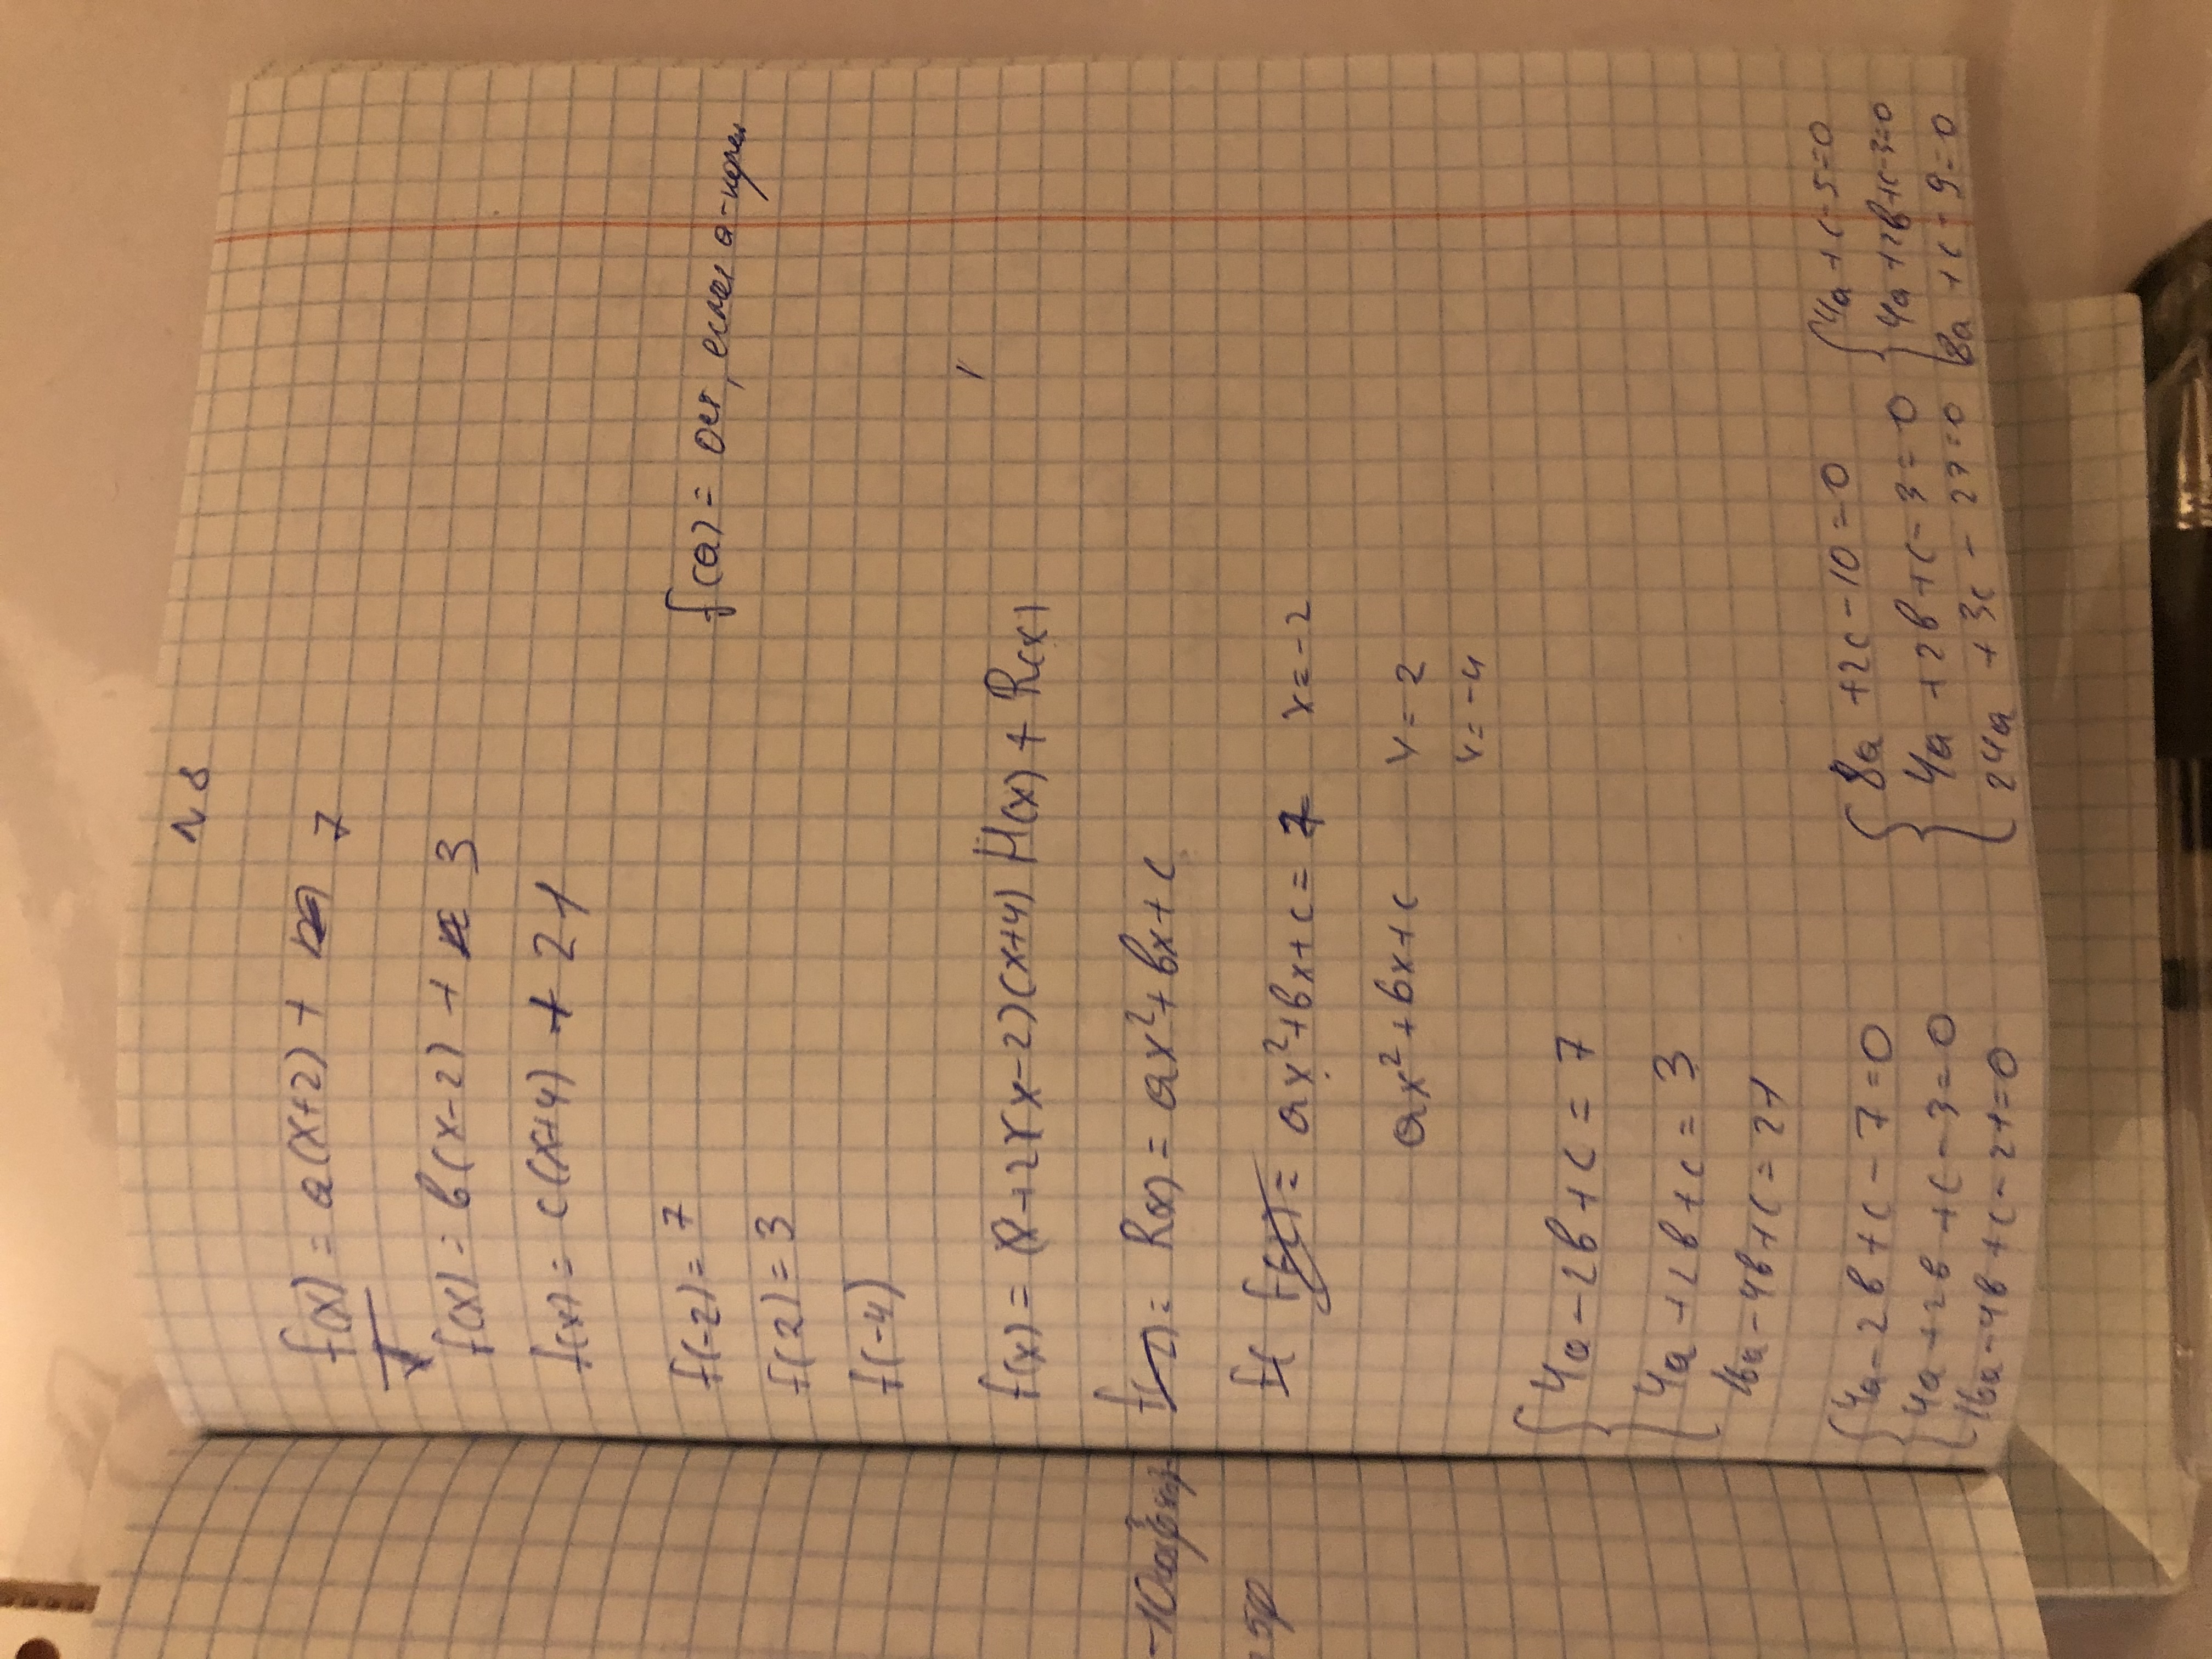 N 8
f(x) = a(x+2) + 7
f(x) = b(x-2) + 3
f(x) = c(x+4) + 21
f(-2) = 7
f(a) = ост, если a - корень
f(2) = 3
f(-4)
f(x) = (x+2)(x-2)(x+4) H(x) + R(x)
-10cos
R(x) = ax²+bx+c
ax²+bx+c = 7 x = -2
ax²+bx+c x = 2
x = -4
4a-2b+c = 7
4a+2b+c = 3
16a-4b+c = 21
4a-2b+c-7=0
4a+2b+c-3=0
16a-4b+c-21=0
8a+2c-10=0
4a+2b+c-3=0
24a+3c-27=0
4a+c-5=0
4a+2b+c-3=0
8a+c-9=0